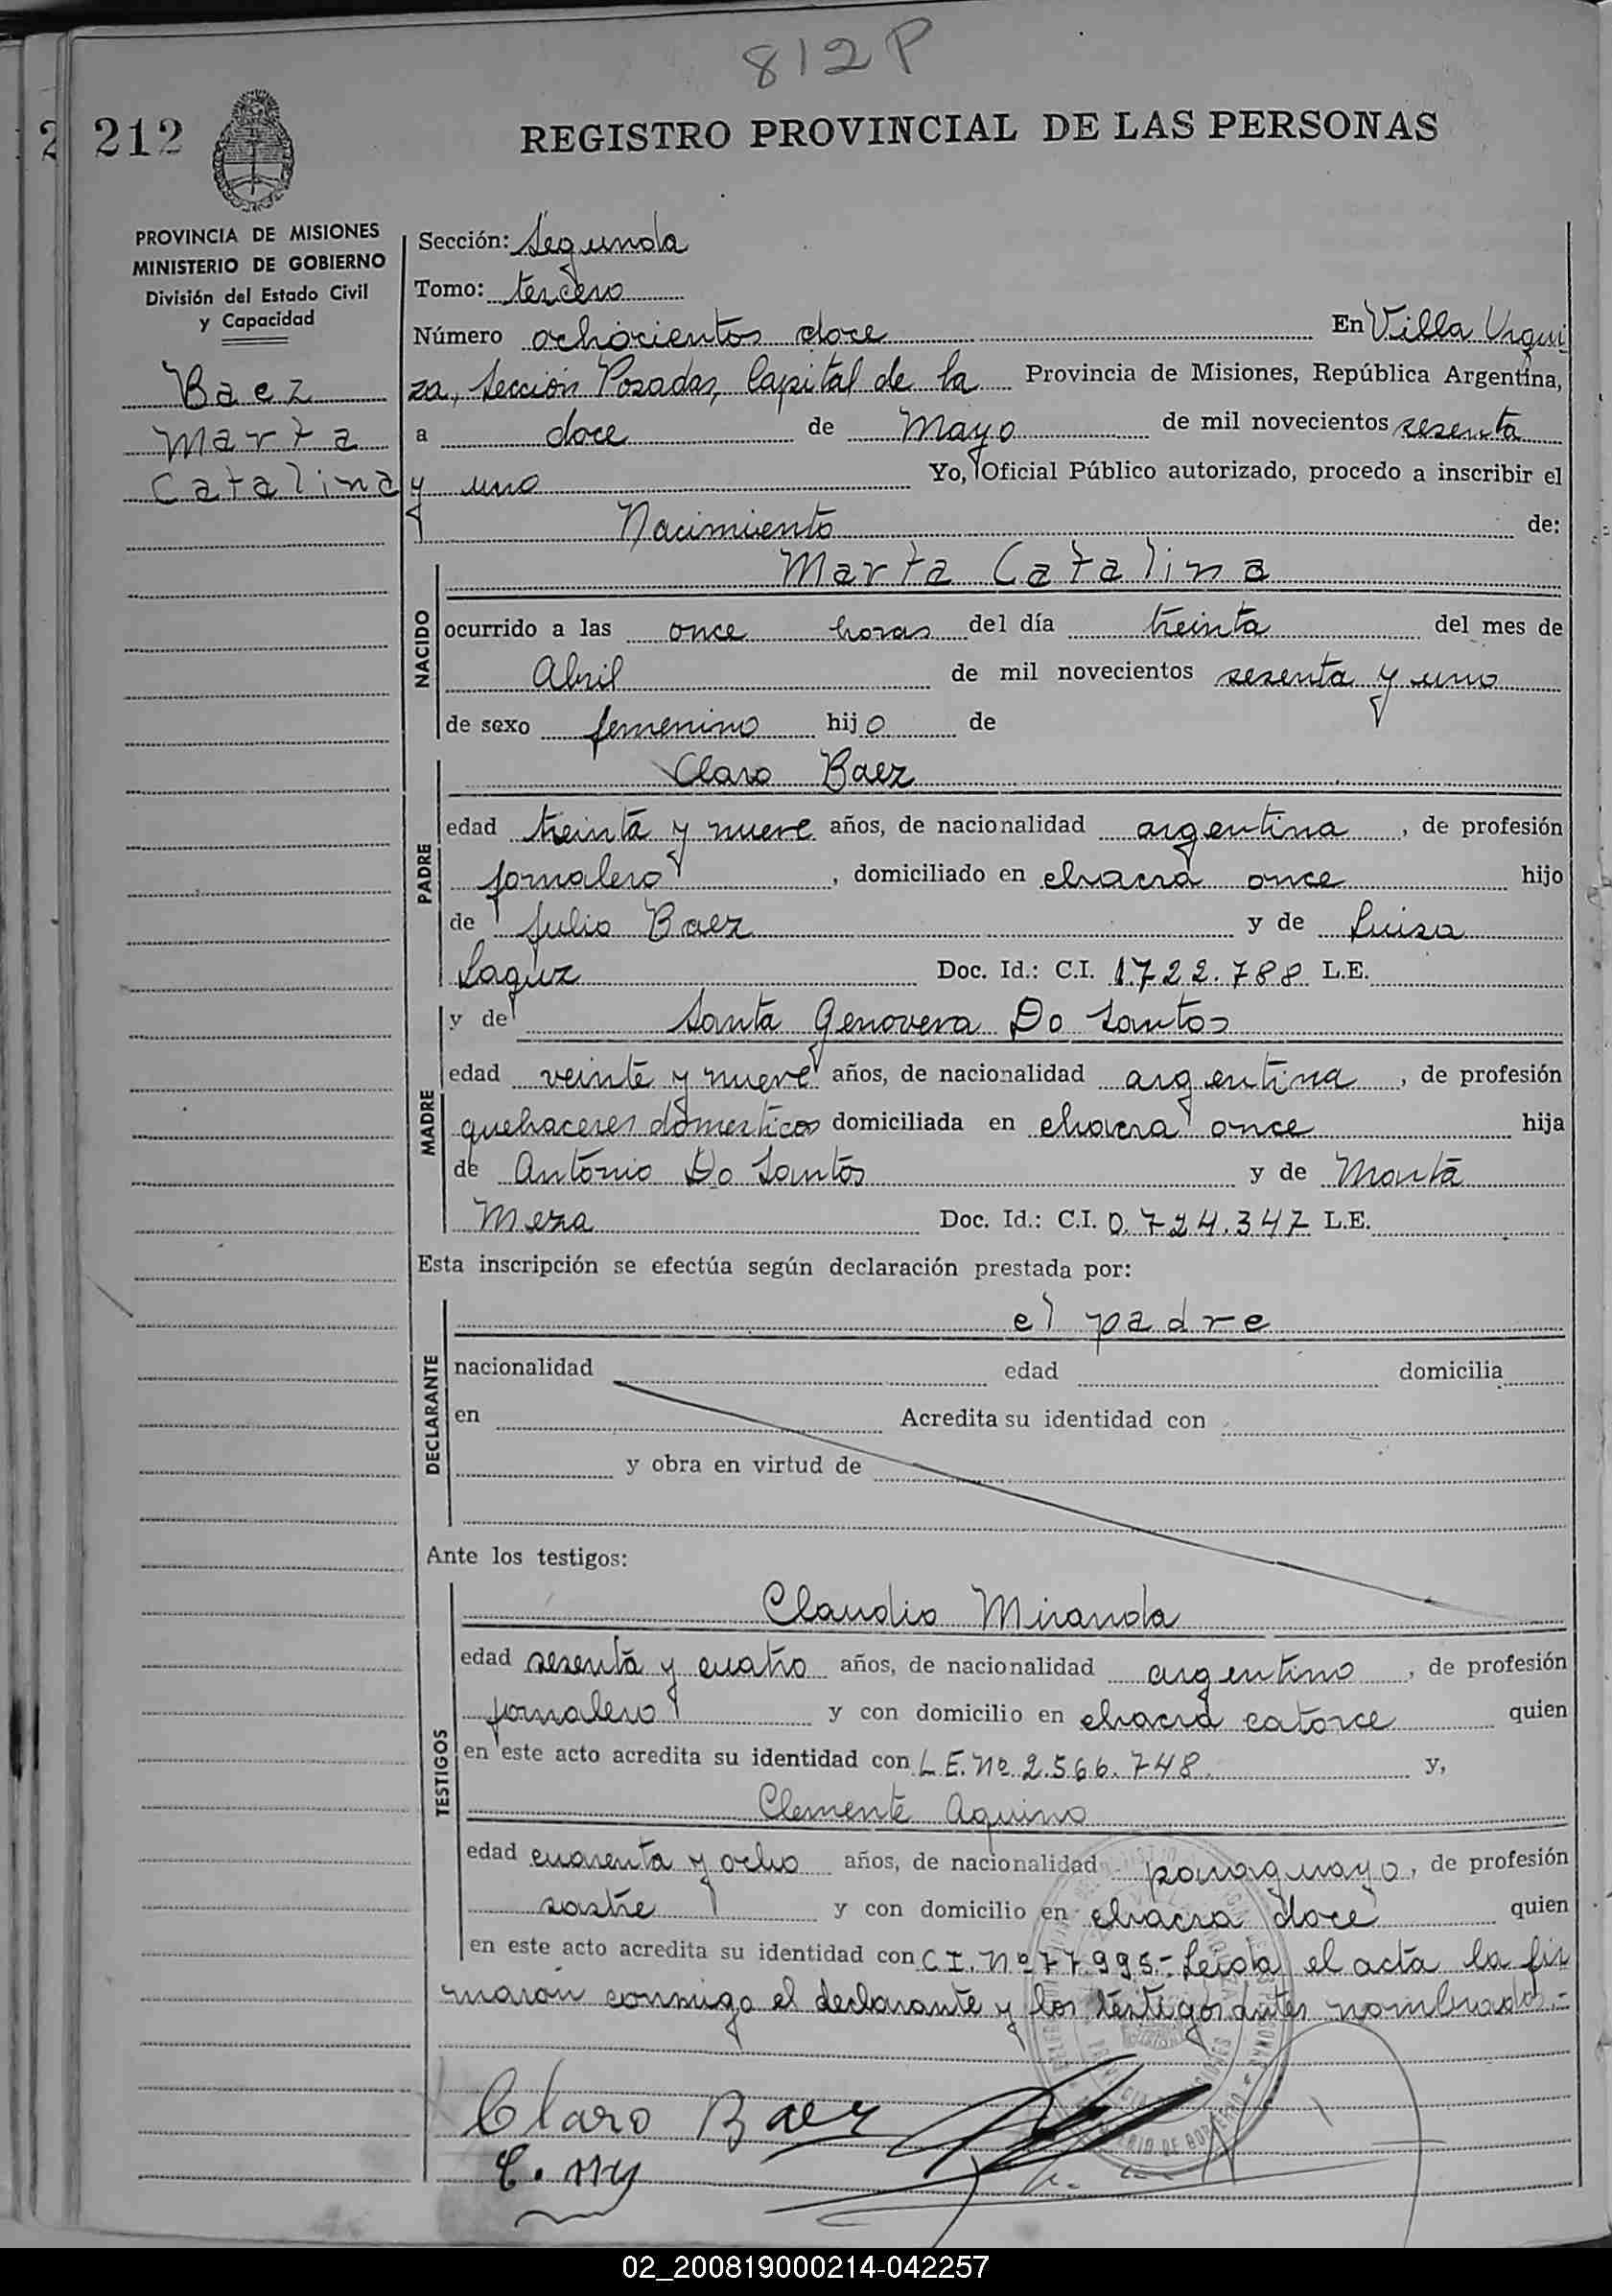 812 P
212
REGISTRO PROVINCIAL DE LAS PERSONAS
PROVINCIA DE MISIONES
MINISTERIO DE GOBIERNO
División del Estado Civil
y Capacidad
Baez
Marta
Catalina
Sección: Segunda
Tomo: tercero
Número ochocientos doce En Villa Urqui
za, Sección Posadas, Capital de la Provincia de Misiones, República Argentina,
a doce de Mayo de mil novecientos sesenta
y uno Yo, Oficial Público autorizado, procedo a inscribir el
Nacimiento de:
NACIDO
Marta Catalina
ocurrido a las once horas del día treinta del mes de
Abril de mil novecientos sesenta y uno
de sexo femenino hijo de
PADRE
Claro Baez
edad treinta y nueve años, de nacionalidad argentina, de profesión
jornalero, domiciliado en chacra once hijo
de Julio Baez y de Luisa
Doc. Id.: C.I. 1.722.788 L.E.
MADRE
y de Santa Genoveva Do Santos
edad veinte y nueve años, de nacionalidad argentina, de profesión
quehaceres domesticos domiciliada en chacra once hija
de Antonio Do Santos y de Marta
Meza Doc. Id.: C.I. 0.724.347 L.E.
Esta inscripción se efectúa según declaración prestada por:
DECLARANTE
el padre
nacionalidad edad domicilia
en Acredita su identidad con
y obra en virtud de
Ante los testigos:
TESTIGOS
Claudio Miranda
edad sesenta y cuatro años, de nacionalidad argentino, de profesión
jornalero y con domicilio en chacra catorce quien
en este acto acredita su identidad con L.E. Nº 2.566.748. y,
Clemente Aquino
edad cuarenta y ocho años, de nacionalidad paraguayo, de profesión
sastre y con domicilio en chacra doce quien
en este acto acredita su identidad con C.I. Nº 77995.- Leida el acta la fir
maron conmigo el declarante y los testigos antes nombrados.-
Claro Baez
02_200819000214-042257